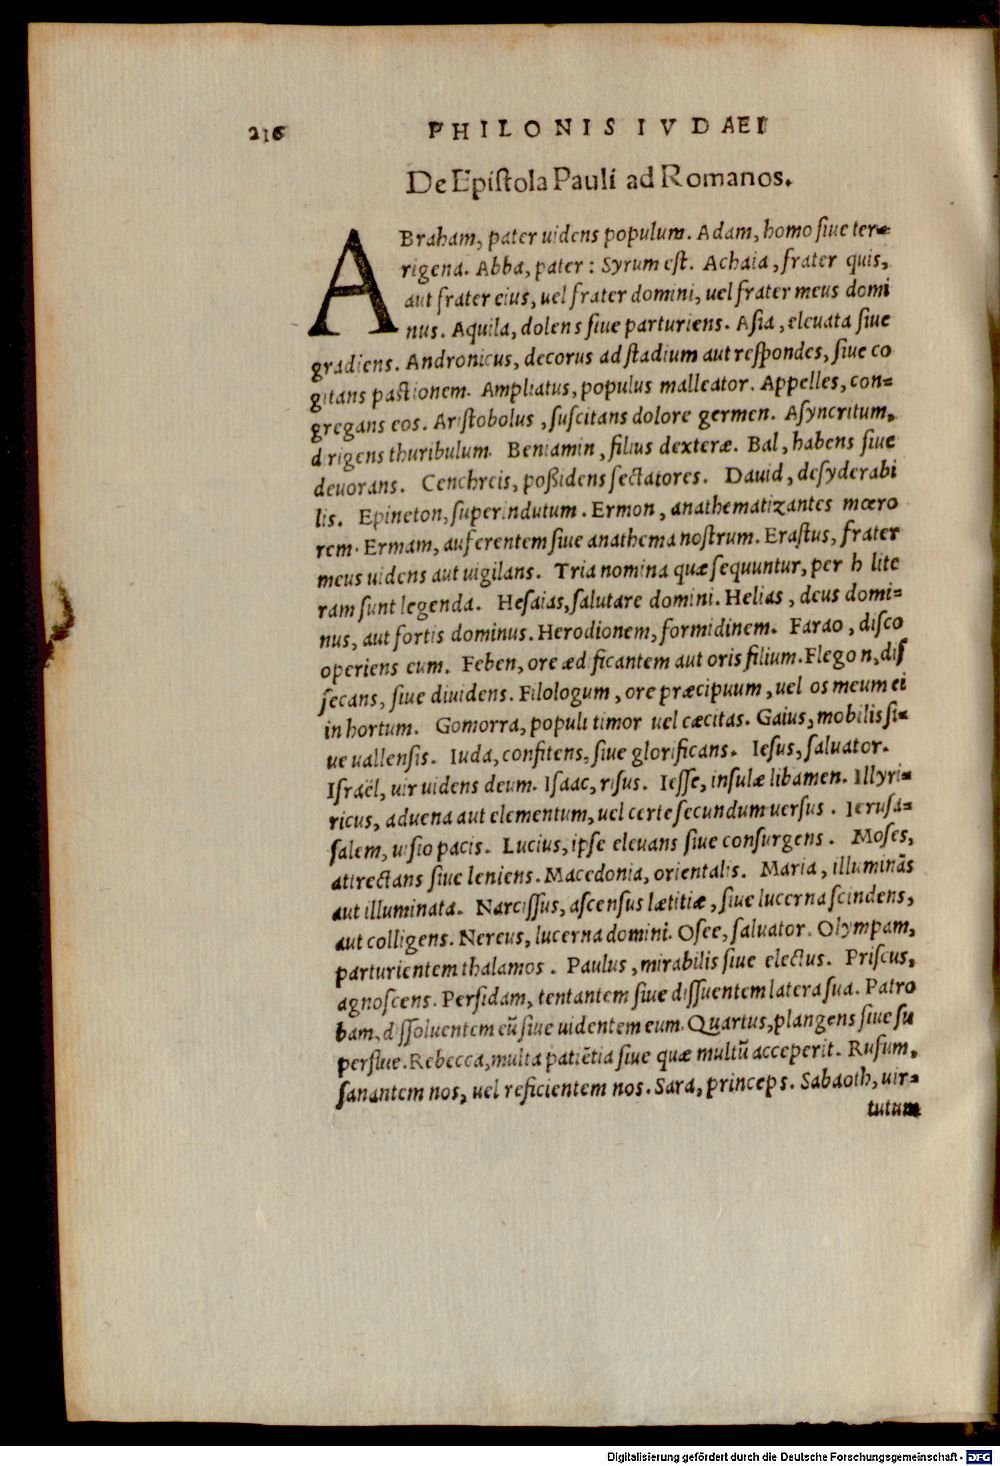 216 PHILONIS IVDAEI
De Epistola Pauli ad Romanos.
ABraham, pater uidens populum. Adam, homo siue ter=
rigena. Abba, pater: Syrum est. Achaia, frater quis,
aut frater eius, uel frater domini, uel frater meus domi
nus. Aquila, dolens siue parturiens. Asia, eleuata siue
gradiens. Andronicus, decorus ad stadium aut respondes, siue co
gitans pastionem. Ampliatus, populus malleator. Appelles, con=
gregans eos. Aristobolus, suscitans dolore germen. Asyncritum,
dirigens thuribulum. Beniamin, filius dexteræ. Bal, habens siue
deuorans. Cenchreis, poßidens sectatores. Dauid, desyderabi
lis. Epineton, superindutum. Ermon, anathematizantes mœro
rem. Ermam, auferentem siue anathema nostrum. Erastus, frater
meus uidens aut uigilans. Tria nomina quæ sequuntur, per h lite
ram sunt legenda. Hesaias, salutare domini. Helias, deus domi=
nus, aut fortis dominus. Herodionem, formidinem. Farao, disco
operiens eum. Feben, ore ædificantem aut oris filium. Flegon, dis
secans, siue diuidens. Filologum, ore præcipuum, uel os meum ei
in hortum. Gomorra, populi timor uel cæcitas. Gaius, mobilis si=
ue uallensis. Iuda, confitens, siue glorificans. Iesus, saluator.
Israël, uir uidens deum. Isaac, risus. Iesse, insulæ libamen. Illyri=
ricus, aduena aut elementum, uel certe secundum uersus. Ierusa=
salem, uisio pacis. Lucius, ipse eleuans siue consurgens. Moses,
attrectans siue leniens. Macedonia, orientalis. Maria, illuminãs
aut illuminata. Narcissus, ascensus lætitiæ, siue lucerna scindens,
aut colligens. Nereus, lucerna domini. Osee, saluator. Olympam,
parturientem thalamos. Paulus, mirabilis siue electus. Priscus,
agnoscens. Persidam, tentantem siue dissuentem latera sua. Patro
bam, dissoluentem eũ siue uidentem eum. Quartus, plangens siue su
perflue. Rebecca, multa patiẽtia siue quæ multũ acceperit. Rufum,
sanantem nos, uel reficientem nos. Sara, princeps. Sabaoth, uir=
tutum
Digitalisierung gefördert durch die Deutsche Forschungsgemeinschaft - DFG